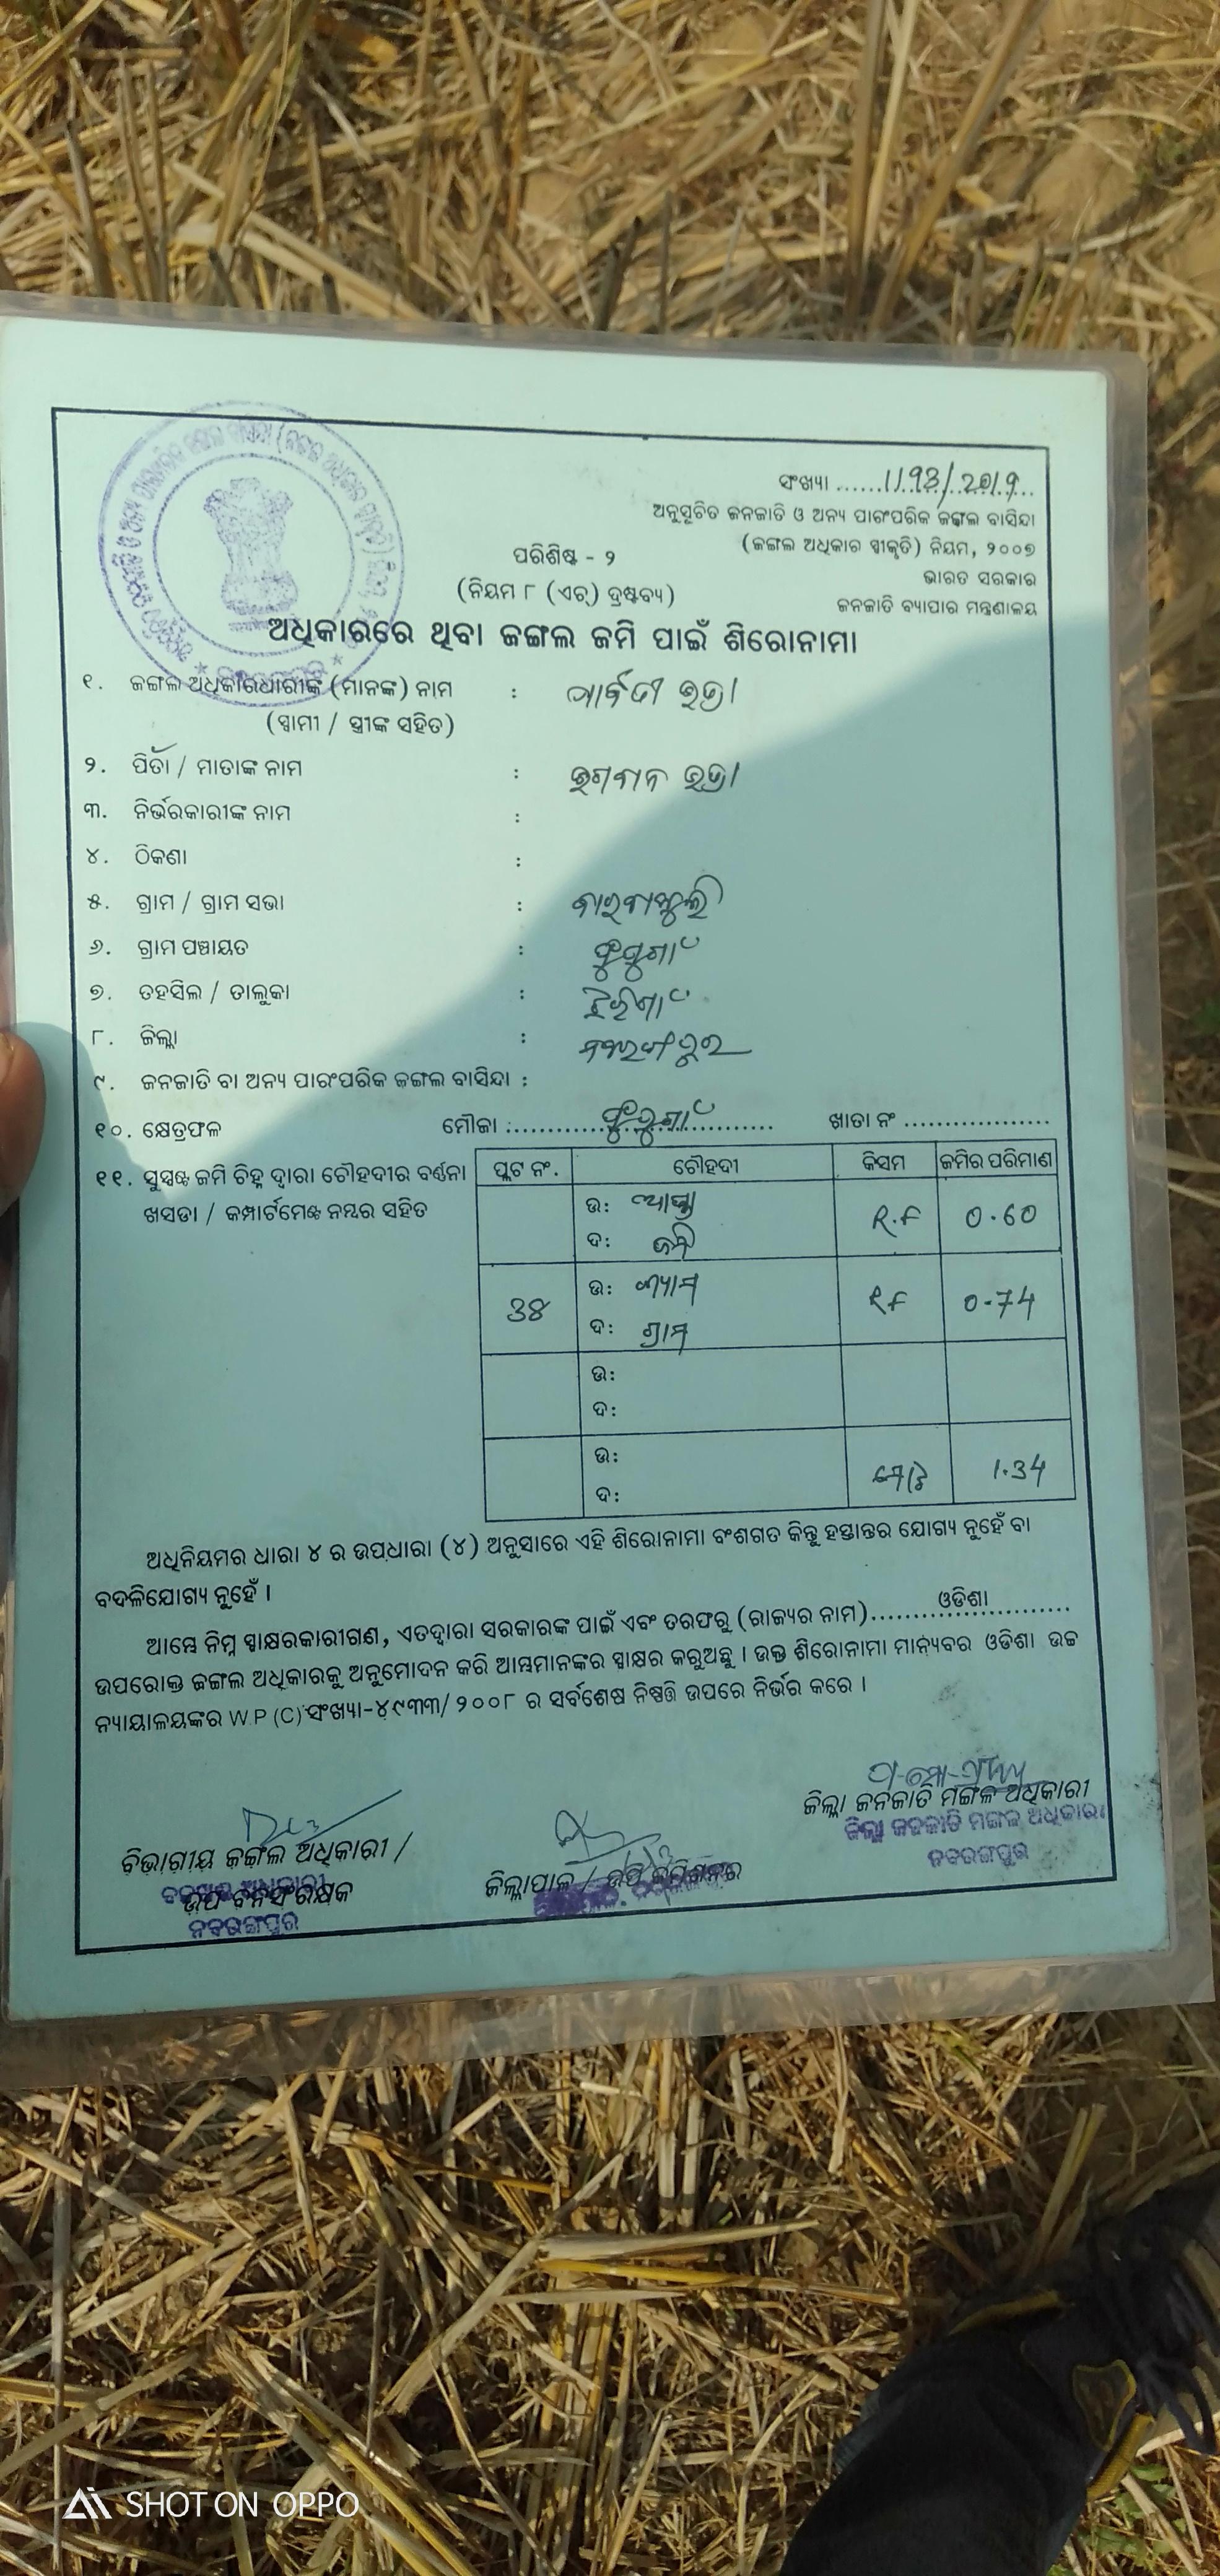 ସଂଖ୍ୟା ......1193/2019...
ଅନୁସୂଚିତ ଜନଜାତି ଓ ଅନ୍ୟ ପାରଂପରିକ ଜଙ୍ଗଲ ବାସିନ୍ଦା
(ଜଙ୍ଗଲ ଅଧିକାର ସ୍ୱୀକୃତି) ନିୟମ, ୨୦୦୭
ଭାରତ ସରକାର
ଜନଜାତି ବ୍ୟାପାର ମନ୍ତ୍ରଣାଳୟ
ପରିଶିଷ୍ଟ - ୨
(ନିୟମ ୮ (ଏଚ୍) ଦ୍ରଷ୍ଟବ୍ୟ)
ଅଧିକାରରେ ଥିବା ଜଙ୍ଗଲ ଜମି ପାଇଁ ଶିରୋନାମା
୧. ଜଙ୍ଗଲ ଅଧିକାରଧାରୀଙ୍କ (ମାନଙ୍କ) ନାମ : ପାର୍ବତୀ ଭତ୍ରା
(ସ୍ୱାମୀ / ସ୍ତ୍ରୀଙ୍କ ସହିତ)
୨. ପିତା / ମାତାଙ୍କ ନାମ : ଭଗବାନ ଭତ୍ରା
୩. ନିର୍ଭରକାରୀଙ୍କ ନାମ :
୪. ଠିକଣା :
୫. ଗ୍ରାମ / ଗ୍ରାମ ସଭା :
୬. ଗ୍ରାମ ପଞ୍ଚାୟତ :
୭. ତହସିଲ / ତାଲୁକା :
୮. ଜିଲ୍ଲା : ନବରଙ୍ଗପୁର
୯. ଜନଜାତି ବା ଅନ୍ୟ ପାରଂପରିକ ଜଙ୍ଗଲ ବାସିନ୍ଦା :
୧୦. କ୍ଷେତ୍ରଫଳ ମୌଜା :.............................. ଖାତା ନଂ ..................
୧୧. ସୁସ୍ପଷ୍ଟ ଜମି ଚିହ୍ନ ଦ୍ୱାରା ଚୌହଦୀର ବର୍ଣ୍ଣନା
ଖସଡା / କମ୍ପାର୍ଟମେଣ୍ଟ ନମ୍ବର ସହିତ
ପ୍ଲଟ ନଂ. ଚୌହଦୀ କିସମ ଜମିର ପରିମାଣ
ଉ: R.F 0.60
ଦ:
38 ଉ: ଶ୍ୟାମ RF 0.74
ଦ: ଗ୍ରାମ
ଉ:
ଦ:
ଉ: ମୋଟ 1.34
ଦ:
ଅଧିନିୟମର ଧାରା ୪ ର ଉପଧାରା (୪) ଅନୁସାରେ ଏହି ଶିରୋନାମା ବଂଶଗତ କିନ୍ତୁ ହସ୍ତାନ୍ତର ଯୋଗ୍ୟ ନୁହେଁ ବା
ବଦଳିଯୋଗ୍ୟ ନୁହେଁ ।
ଆମ୍ଭେ ନିମ୍ନ ସ୍ୱାକ୍ଷରକାରୀଗଣ, ଏତଦ୍ୱାରା ସରକାରଙ୍କ ପାଇଁ ଏବଂ ତରଫରୁ (ରାଜ୍ୟର ନାମ)......ଓଡିଶା..........
ଉପରୋକ୍ତ ଜଙ୍ଗଲ ଅଧିକାରକୁ ଅନୁମୋଦନ କରି ଆମ୍ଭମାନଙ୍କର ସ୍ୱାକ୍ଷର କରୁଅଛୁ । ଉକ୍ତ ଶିରୋନାମା ମାନ୍ୟବର ଓଡିଶା ଉଚ୍ଚ
ନ୍ୟାୟାଳୟଙ୍କର W.P (C) ସଂଖ୍ୟା-୪୯୩୩/ ୨୦୦୮ ର ସର୍ବଶେଷ ନିଷ୍ପତ୍ତି ଉପରେ ନିର୍ଭର କରେ ।
ଜିଲ୍ଲା ଜନଜାତି ମଙ୍ଗଳ ଅଧିକାରୀ
ଜିଲ୍ଲା ଜନଜାତି ମଙ୍ଗଳ ଅଧିକାରୀ
ନବରଙ୍ଗପୁର
ବିଭାଗୀୟ ଜଙ୍ଗଲ ଅଧିକାରୀ /
ଉପ ବନସଂରକ୍ଷକ
ନବରଙ୍ଗପୁର
ଜିଲ୍ଲାପାଳ / ଉପ କମିଶନର
SHOT ON OPPO